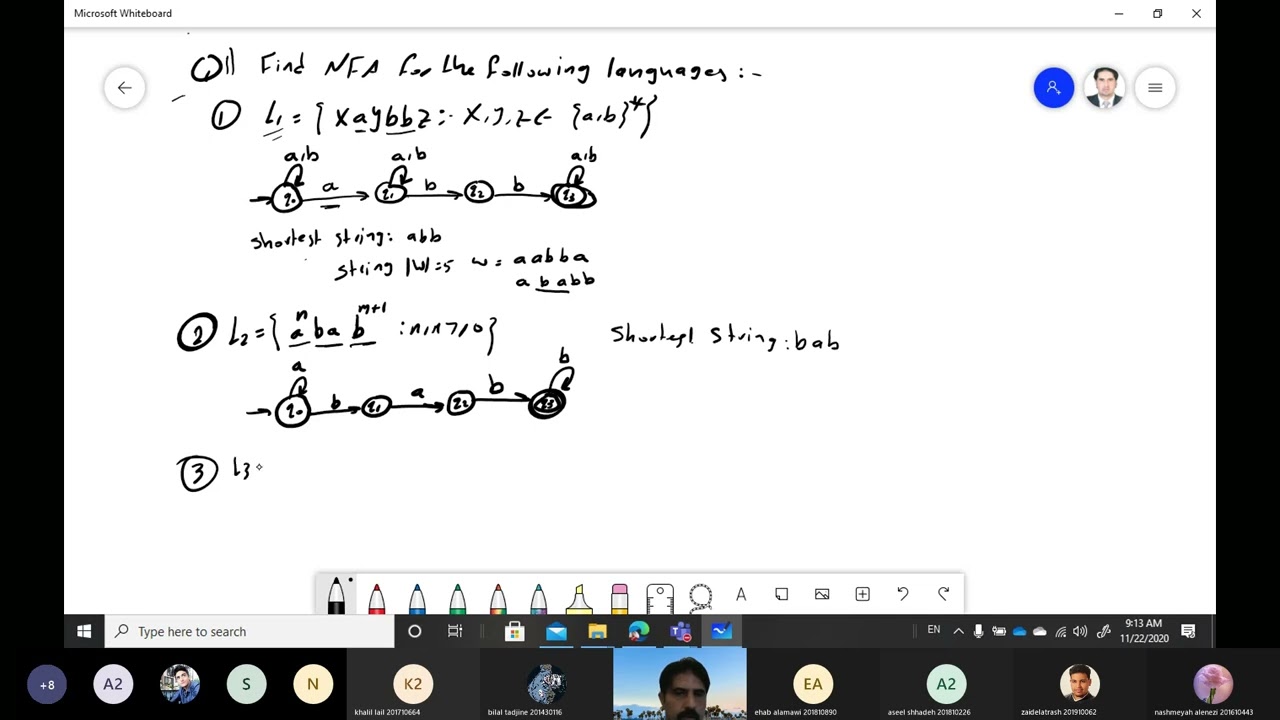 Microsoft Whiteboard
Q1| Find NFA for the following languages :-
① L₁ = { x a y b b z :- x, y, z ∈ {a,b}* }
a,b a,b a,b
q₀ a q₁ b q₂ b q₃
shortest string: abb
string |w|=5 w = aabba
ababb
② L₂ = { aⁿ ba bᵐ⁺¹ : n,m ≥ 0 } Shortest String : bab
a b
q₀ b q₁ a q₂ b q₃
③ L3
A
Type here to search
EN
9:13 AM
11/22/2020
+8 A2 S N K2 EA A2
khalil lail 201710664 bilal tadjine 201430116 ehab alamawi 201810890 aseel shhadeh 201810226 zaidelatrash 201910062 nashmeyah alenezi 201610443